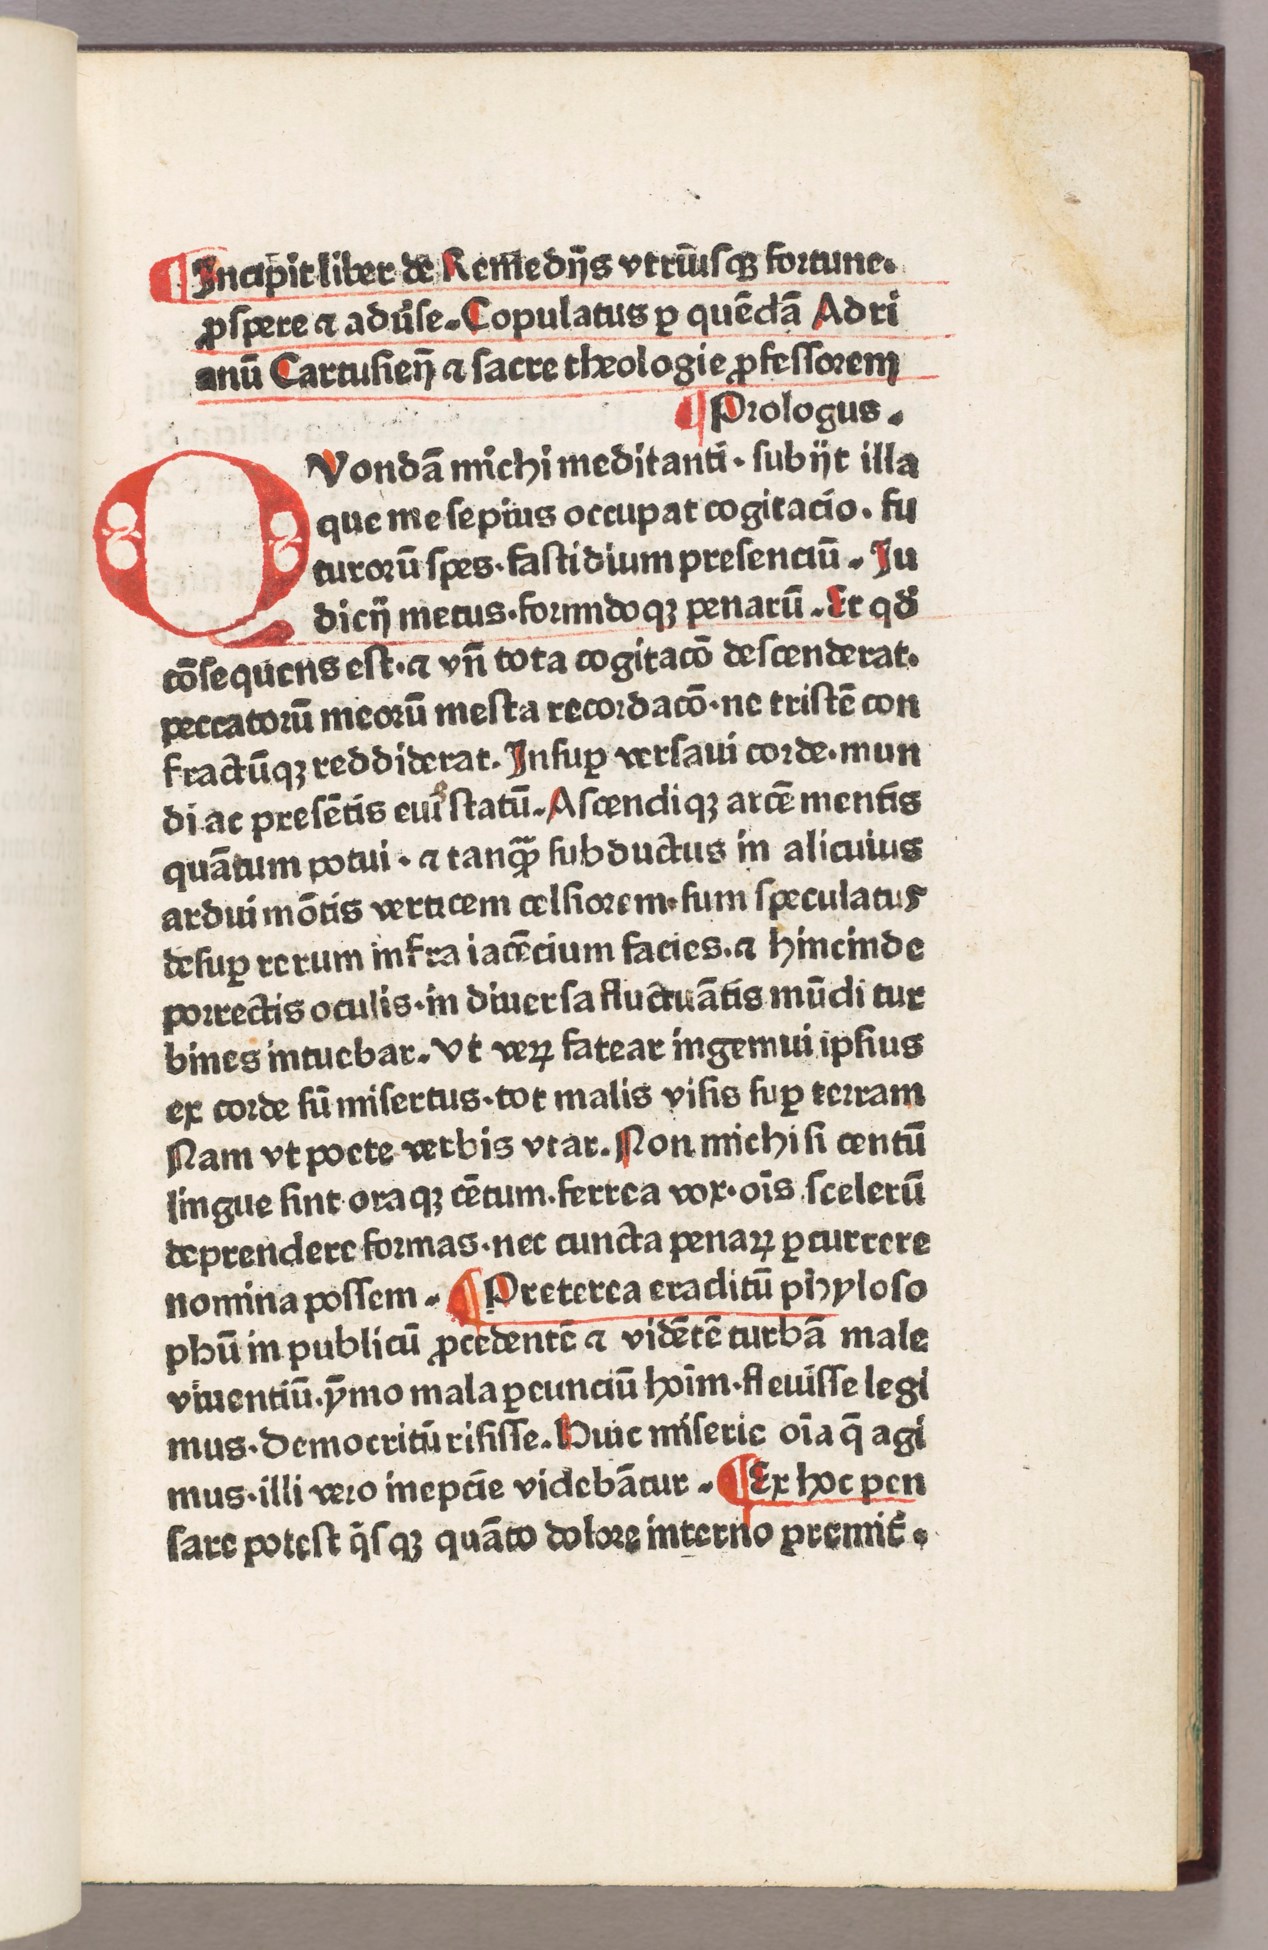 ¶ Incipit liber de Remedijs vtriusqꝫ fortune.
ꝓspere ⁊ adūse. Copulatus ꝑ quēdā Adri
anū Cartusieñ ⁊ sacre theologie ꝓfessorem
¶ Prologus.
QVondā michi meditanti · subijt illa
que me sepius occupat cogitacio. fu
turorū spes · fastidium presenciū. Iu
dicij metus · formidoqꝫ penarū. Et qđ
cōsequens est · ⁊ vñ tota cogitacō descenderat.
peccatorū meorū mesta recordacō · ne tristē con
fractūqꝫ reddiderat. Insuꝑ versaui corde · mun
di ac presētis eui statū. Ascendiqꝫ arcē mentis
quātum potui · ⁊ tanqꝫ̄ subductus in alicuius
ardui mōtis verticem celsiorem · sum speculatus
desuꝑ rerum infra iacēcium facies. ⁊ hincinde
porrectis oculis · in diuersa fluctuātis mūdi tur
bines intuebar. Vt veꝝ fatear ingemui ipsius
ex corde sū misertus · tot malis visis suꝑ terram
Nam vt poete verbis vtar. Non michi si centū
lingue sint oraqꝫ cētum · ferrea vox · oīs scelerū
deprendere formas · nec cuncta penaꝝ ꝑcurrere
nomina possem. ¶ Preterea eraditū phyloso
phū in publicū ꝓcedentē ⁊ vidētē turbā male
viuentiū · ȳmo mala ꝑeunciū hoīm · fleuisse legi
mus · Democritū risisse. Huic miserie oīa q̄ agi
mus · illi vero ineptie videbātur. ¶ Ex hoc pen
sare potest q̄sqꝫ quāto dolore interno premit̄.